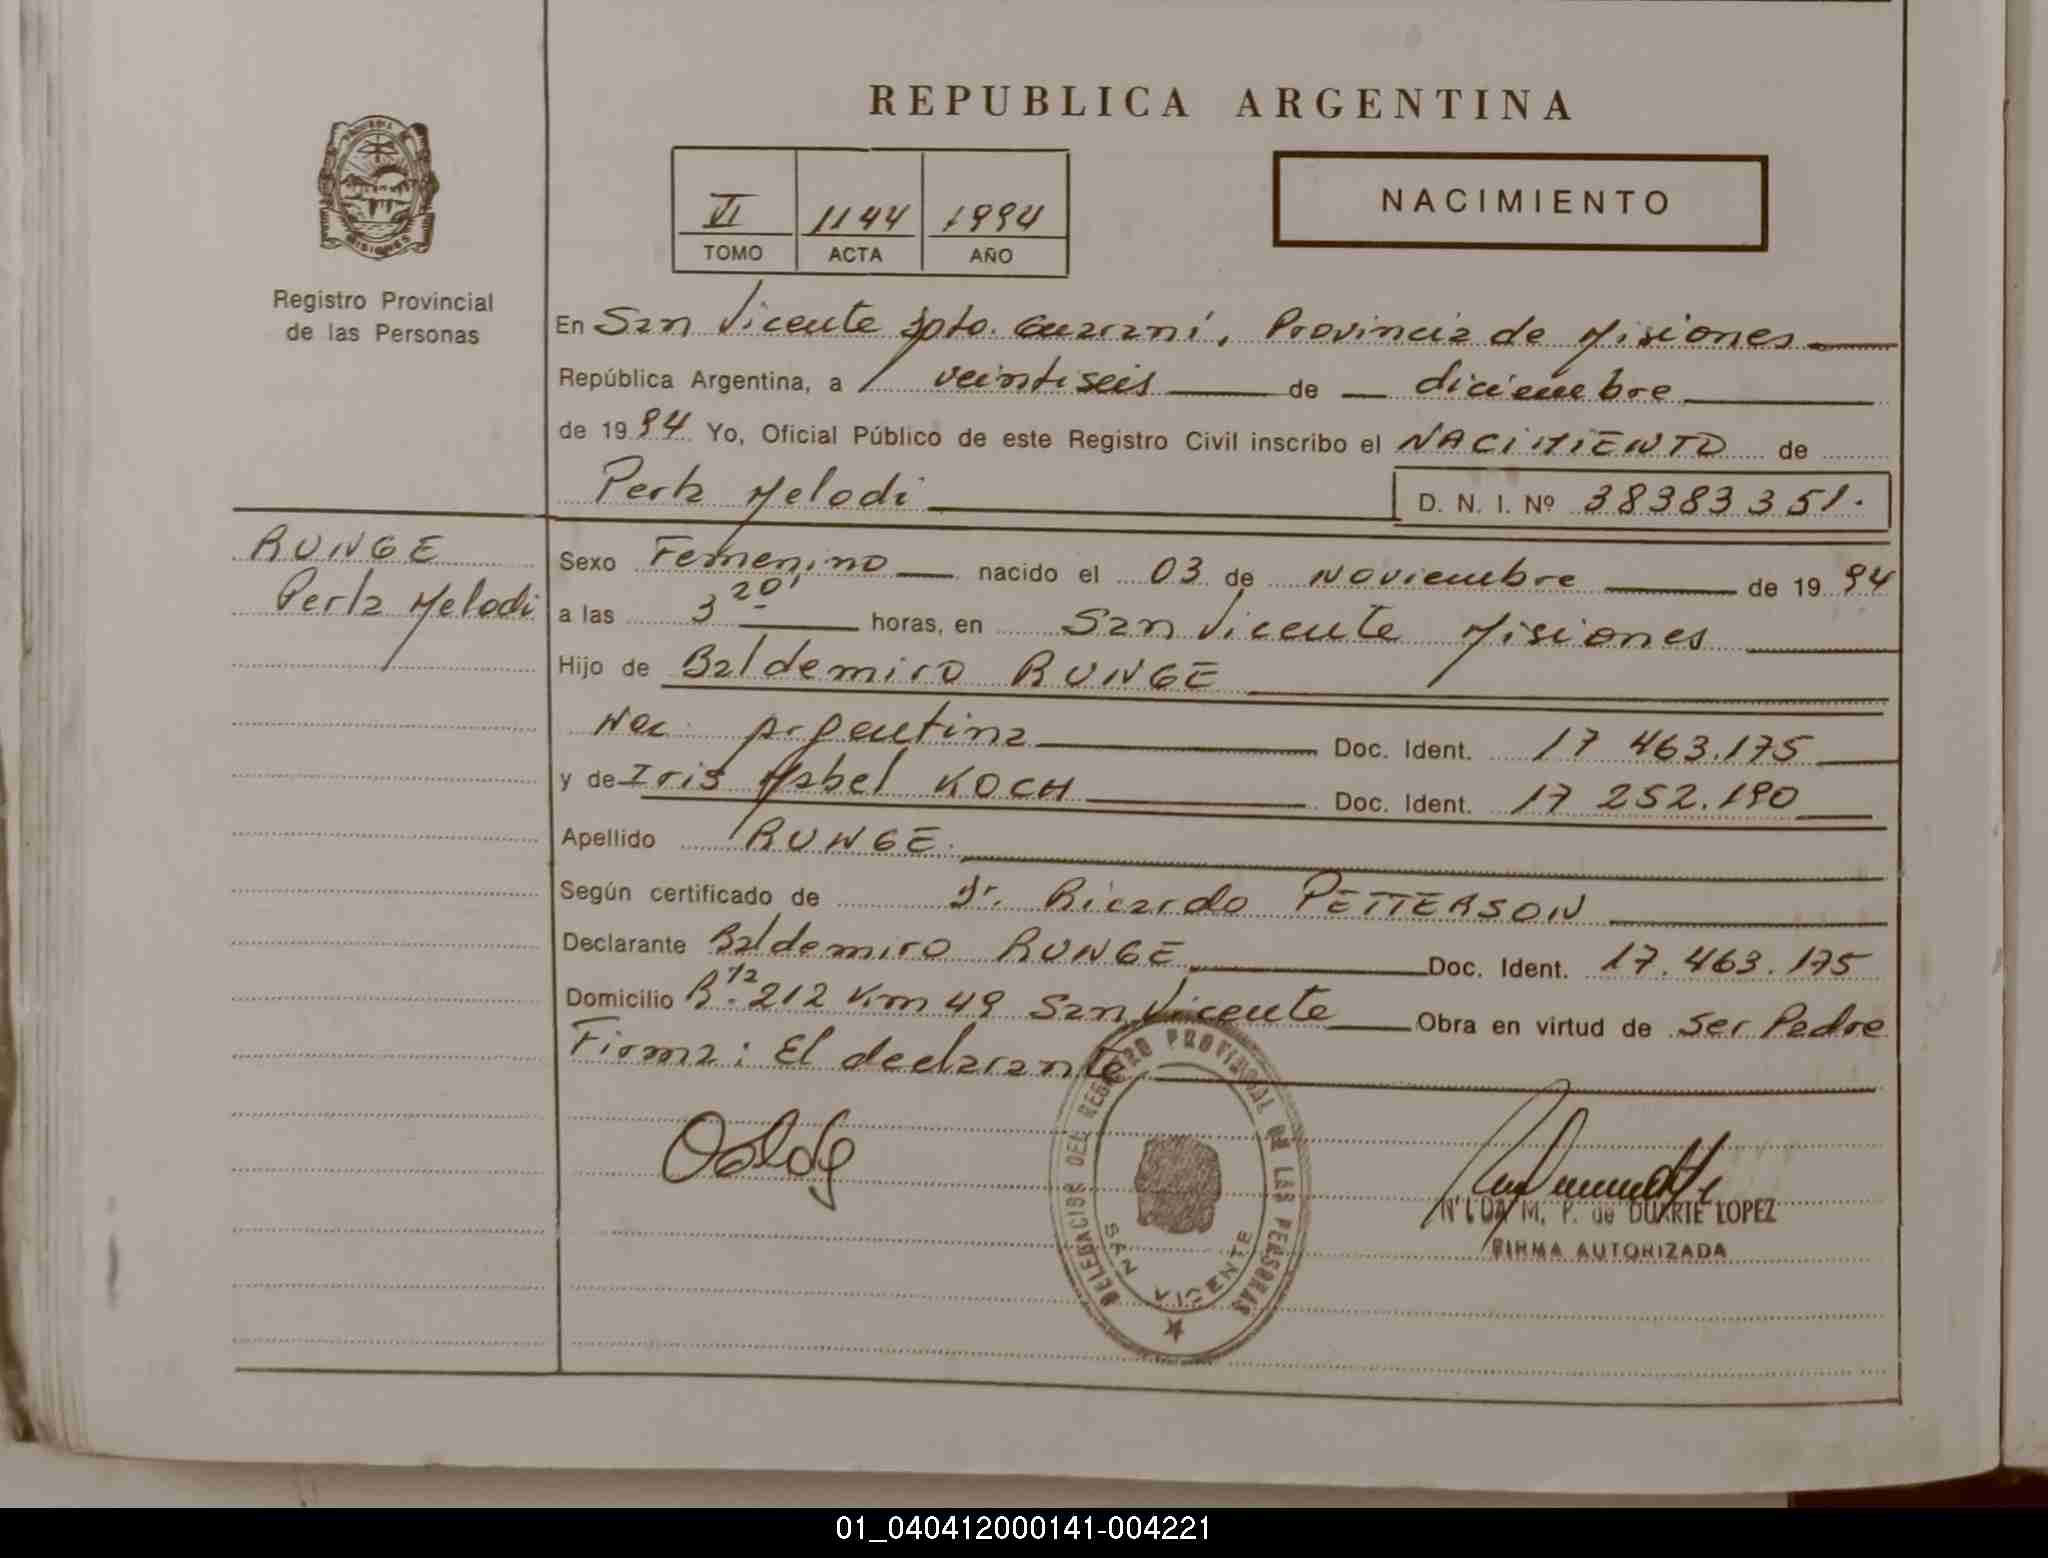 REPUBLICA ARGENTINA
NACIMIENTO
VI 1144 1994
TOMO ACTA AÑO
Registro Provincial
de las Personas
En San Vicente Dpto. Guaraní, Provincia de Misiones
República Argentina, a veintiseis de diciembre
de 1994 Yo, Oficial Público de este Registro Civil inscribo el NACIMIENTO de
Perla Melodi D. N. I. Nº 38383351.
RUNGE
Perla Melodi
Sexo Femenino nacido el 03 de noviembre de 1994
a las 3 20' horas, en San Vicente Misiones
Hijo de Baldemiro RUNGE
Nac. Argentina Doc. Ident. 17 463.175
y de Iris Mabel KOCH Doc. Ident. 17 252.190
Apellido RUNGE.
Según certificado de Dr. Ricardo PETTERSON
Declarante Baldemiro RUNGE Doc. Ident. 17.463.175
Domicilio R.12 212 Km 49 San Vicente Obra en virtud de ser Padre
Firma: El declarante
DELEGACION DEL REGISTRO PROVINCIAL DE LAS PERSONAS
SAN VICENTE
NILDA M. P. de DUARTE LOPEZ
FIRMA AUTORIZADA
MISIONES
01_040412000141-004221